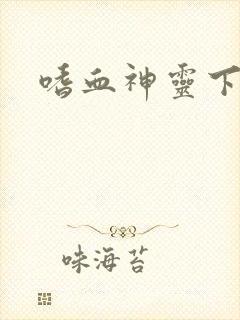 嗜血神靈下
味海苔